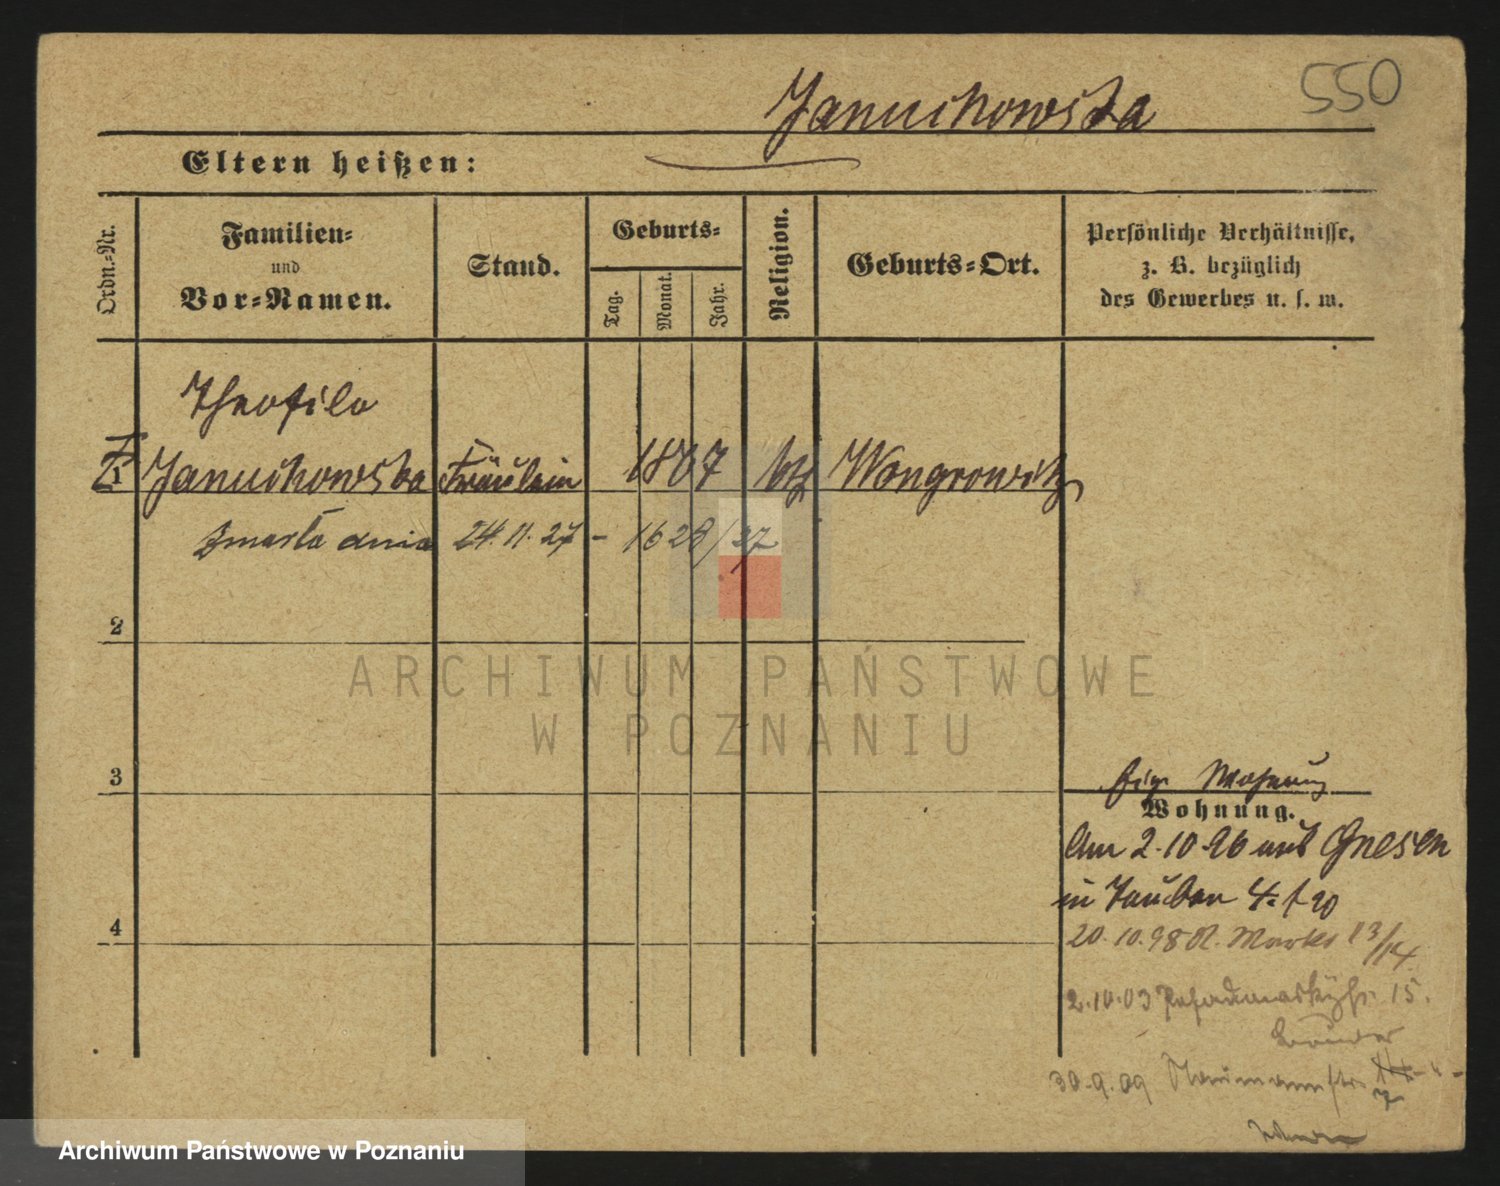 550
Januchowska
Eltern heißen:
Ordn.-Nr.
Familien-
und
Vor-Namen.
Stand.
Geburts-
Tag.
Monat.
Jahr.
Religion.
Geburts-Ort.
Persönliche Verhältnisse,
z. B. bezüglich
des Gewerbes u. s. w.
Theofila
1 Januchowska Fräulein 1867 kth Wongrowitz
Zmarła dnia 24.11.27 - 1628/27
2
3
4
Wohnung
Wohnung.
Am 2.10.96 aus Gnesen
in Tauben 4.
20.10.98 A. Markt 13/14
2.10.03 15.
30.9.09 Naumannstr. 7
ARCHIWUM PAŃSTWOWE
W POZNANIU
Archiwum Państwowe w Poznaniu